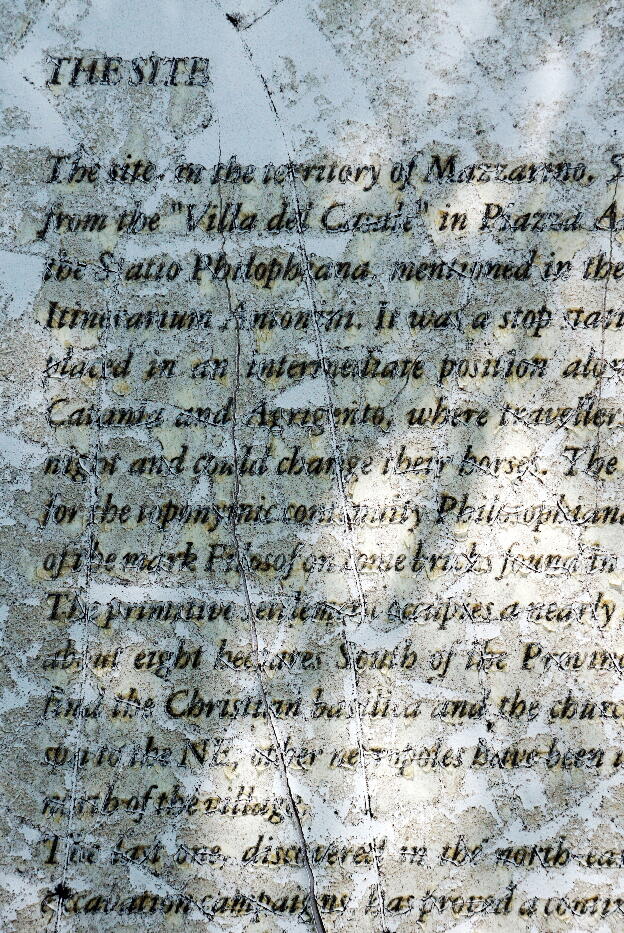 THE SITE
The site, in the territory of Mazzarino, S
from the "Villa del Casale" in Piazza A
the Statio Philophiana, mentioned in the
Itinerarium Antonini. It was a stop stati
placed in an intermediate position alon
Catania and Agrigento, where travellers
night and could change their horses. The
for the toponymic continuity Philosophiana
of the mark Filosof on some bricks found in
The primitive settlement occupies a nearly
about eight hectares South of the Provinc
find the Christian basilica and the churc
spa to the NE, other necropoles have been
north of the village.
The last one, discovered in the north-eas
excavation campaigns, has proved a contin